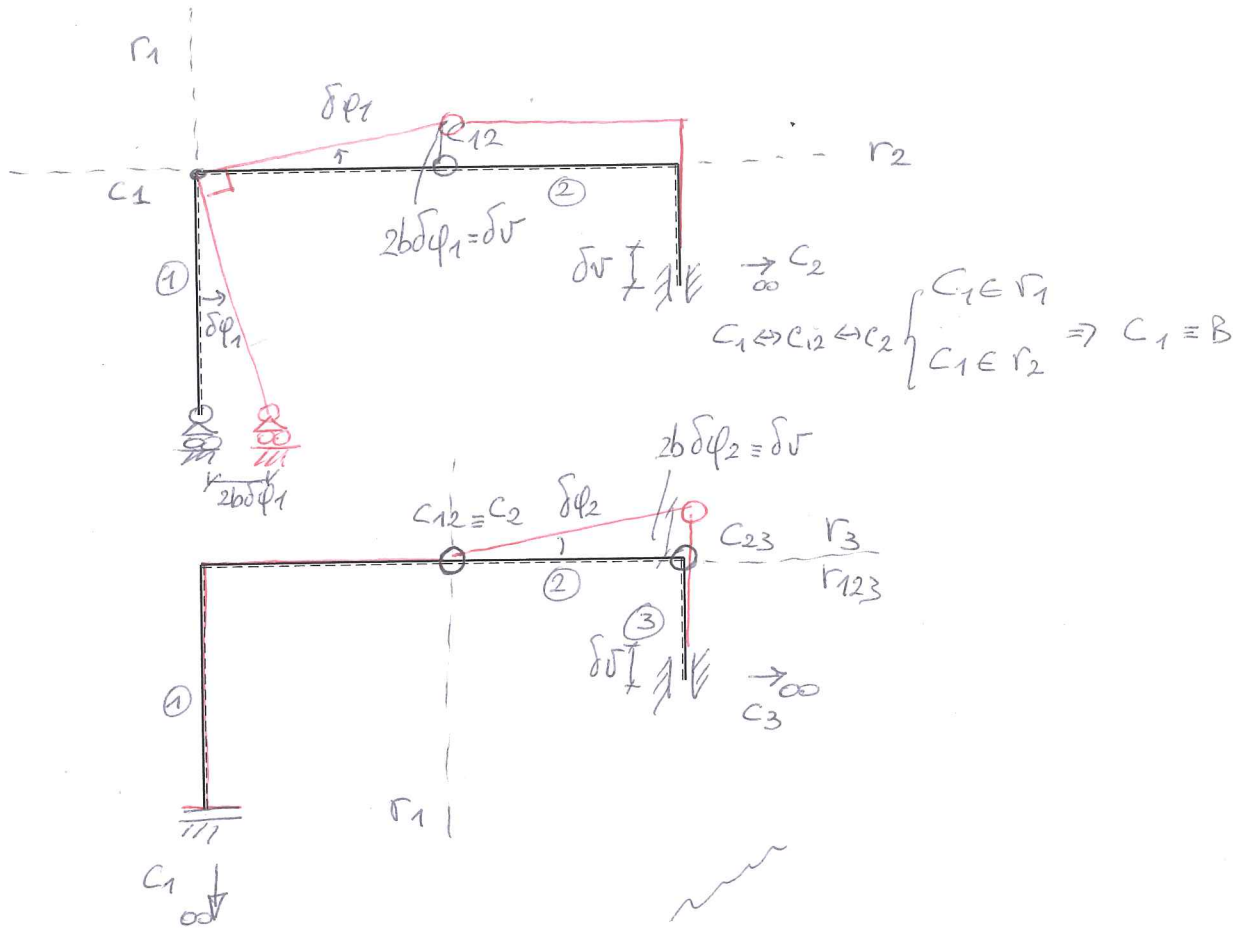 r1
δφ1
C12
r2
C1
②
2bδφ1=δv
δv
→ C2
∞
①
δφ1
C1 ⇔ C12 ⇔ C2 { C1 ∈ r1
C1 ∈ r2
⇒ C1 ≡ B
2bδφ1
2bδφ2 ≡ δv
C12 ≡ C2
δφ2
C23
r3
r123
②
③
δv
→∞
C3
①
r1
C1
∞